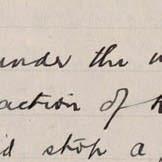 under the
action of
stop a